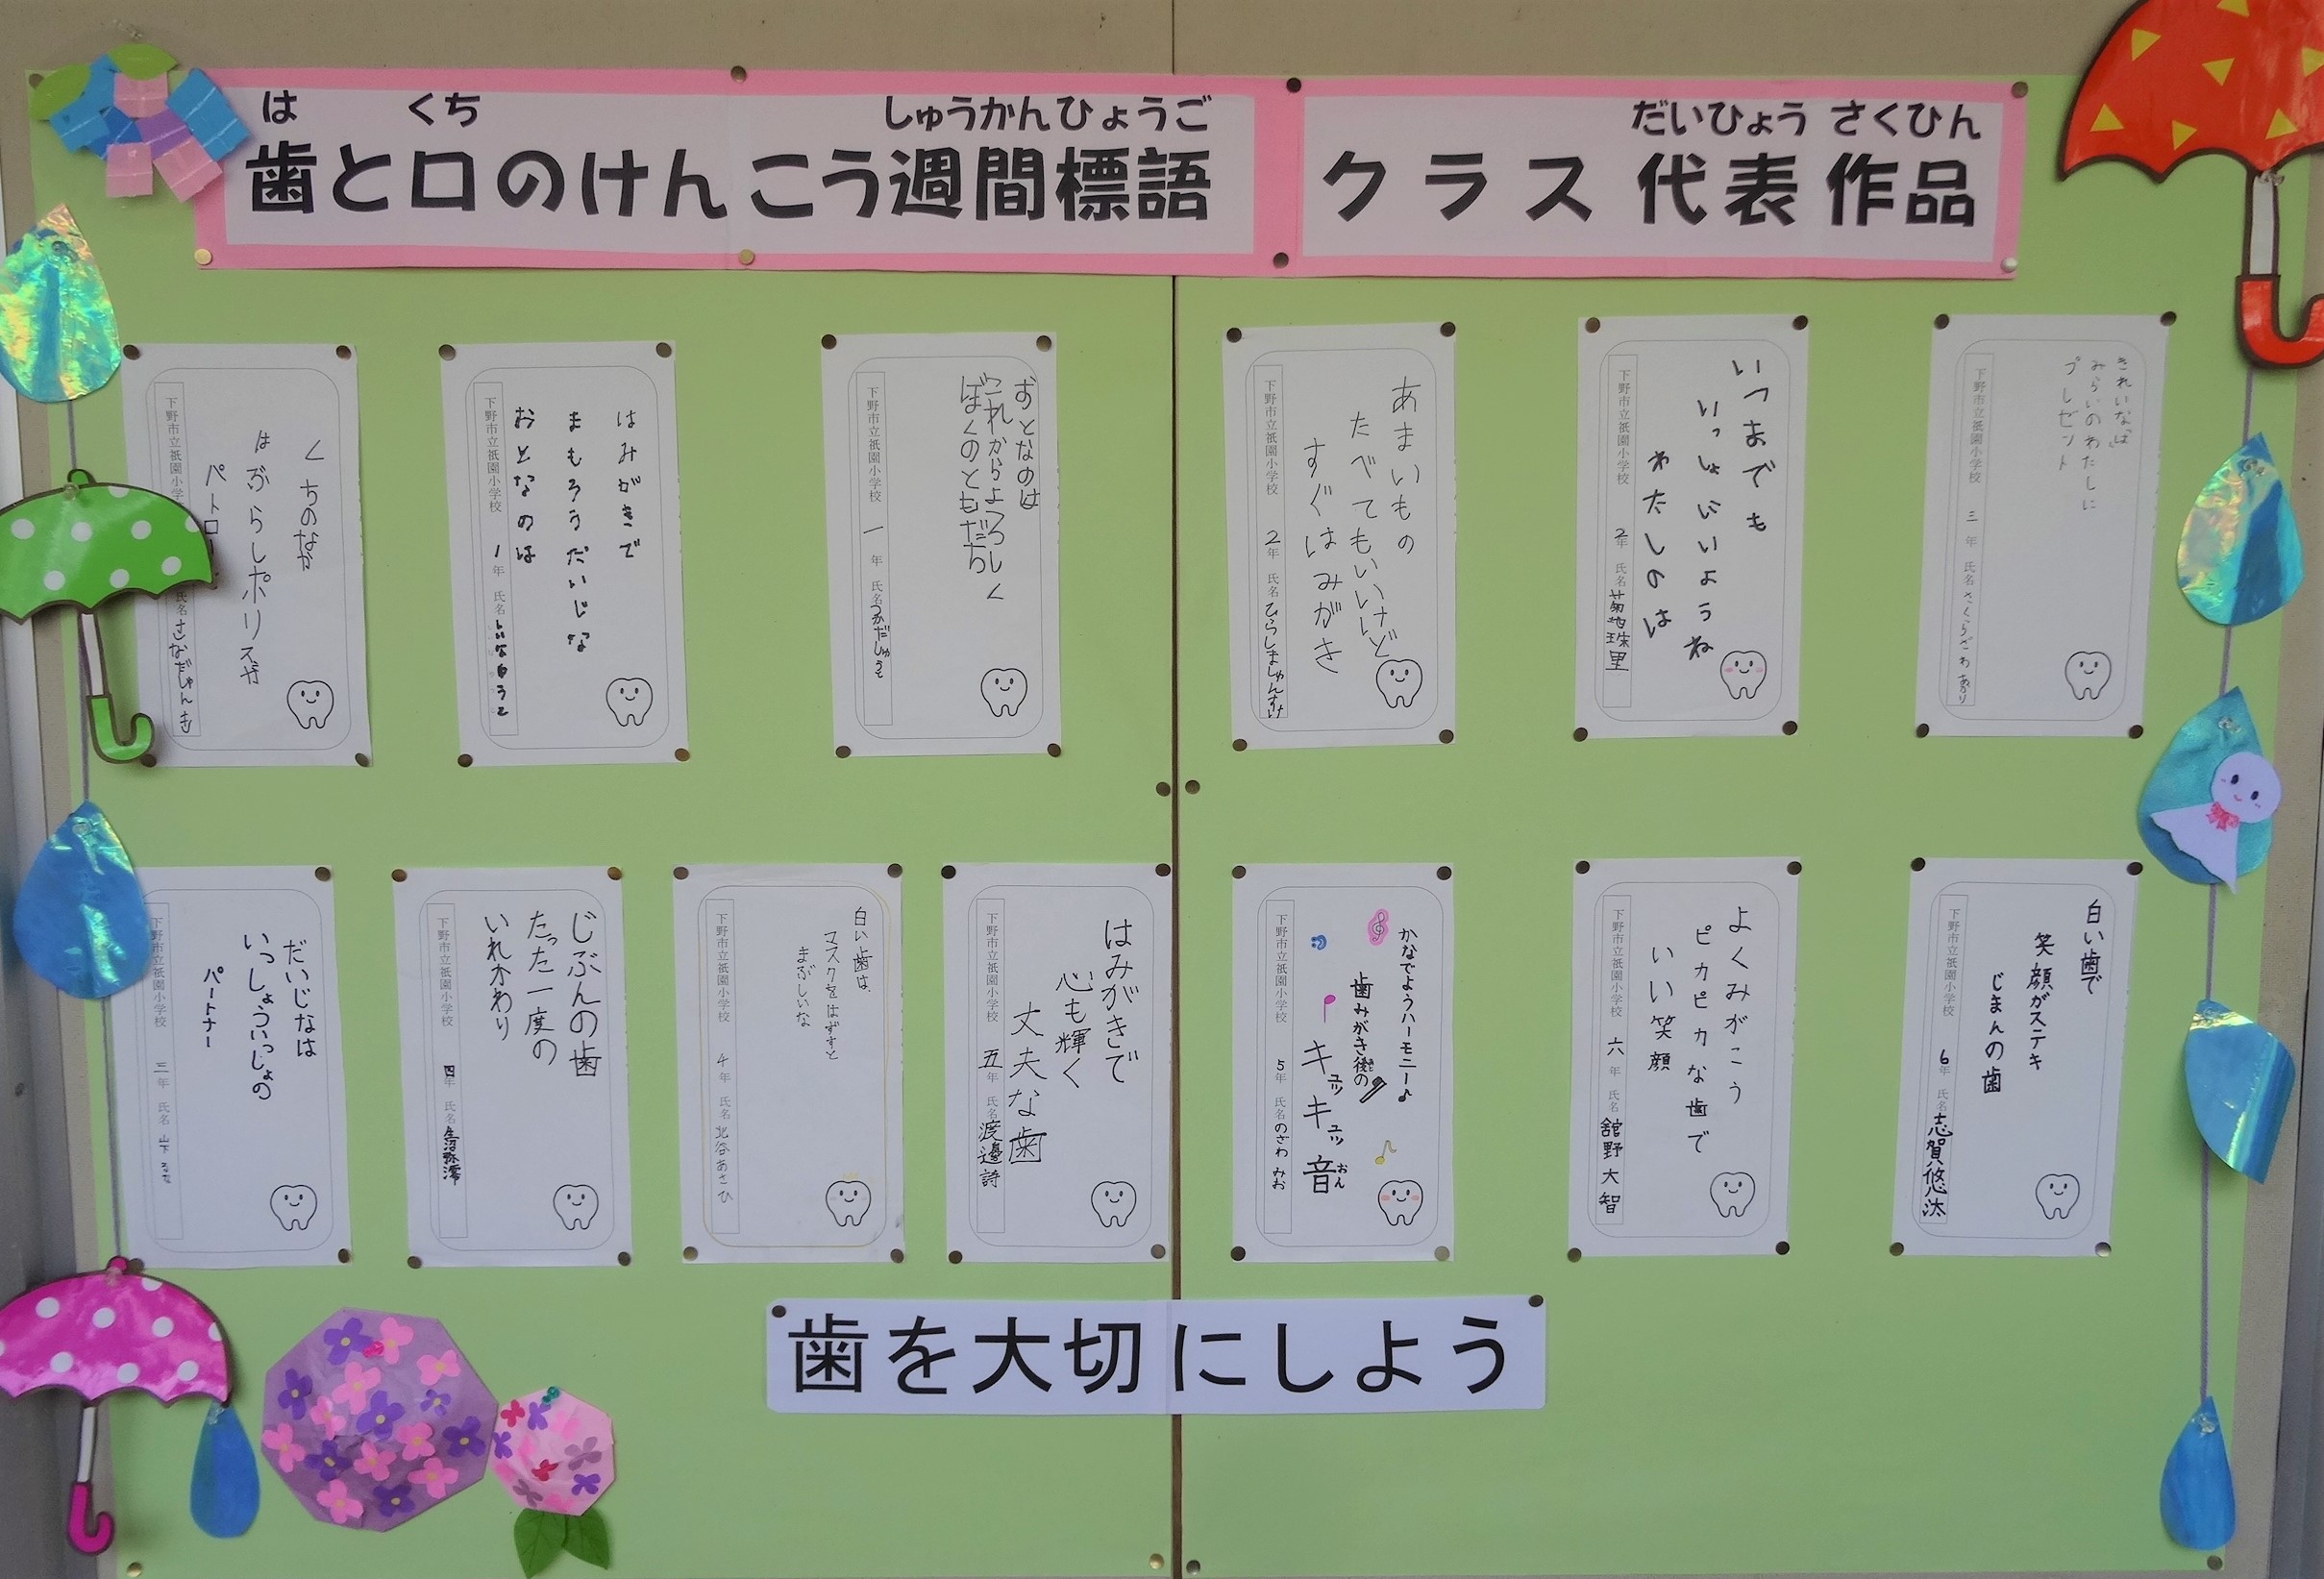 は くち しゅうかんひょうご
歯と口のけんこう週間標語
だいひょう さくひん
クラス 代表 作品
くちのなか
はぶらしポリスが
パトロ
下野市立祇園小学校
氏名 さなだじゅんき
はみがきで
まもろうだいじな
おとなのは
下野市立祇園小学校 1年 氏名
おとなのは
これからよろしく
ぼくのともだち
下野市立祇園小学校 一年 氏名 つかだしゅうも
あまいもの
たべてもいいけど
すぐはみがき
下野市立祇園小学校 2年 氏名 ひらしましゅんすけ
いつまでも
いっしょにいようね
わたしのは
下野市立祇園小学校 2年 氏名 菊地珠里
きれいな「は」
みらいのわたしに
プレゼント
下野市立祇園小学校 三年 氏名 さくらざわ あかり
だいじなは
いっしょういっしょの
パートナー
下野市立祇園小学校 三年 氏名 山下
じぶんの歯
たった一度の
いれかわり
下野市立祇園小学校 四年 氏名
白い歯は、
マスクをはずすと
まぶしいな
下野市立祇園小学校 4年 氏名 北谷あさひ
はみがきで
心も輝く
丈夫な歯
下野市立祇園小学校 五年 氏名 渡邊詩
かなでようハーモニー♪
歯みがき後の
キュッキュッ音
おん
下野市立祇園小学校 5年 氏名 のざわ みお
よくみがこう
ピカピカな歯で
いい笑顔
下野市立祇園小学校 六年 氏名 舘野大智
白い歯で
笑顔がステキ
じまんの歯
下野市立祇園小学校 6年 氏名 志賀悠汰
歯を大切にしよう